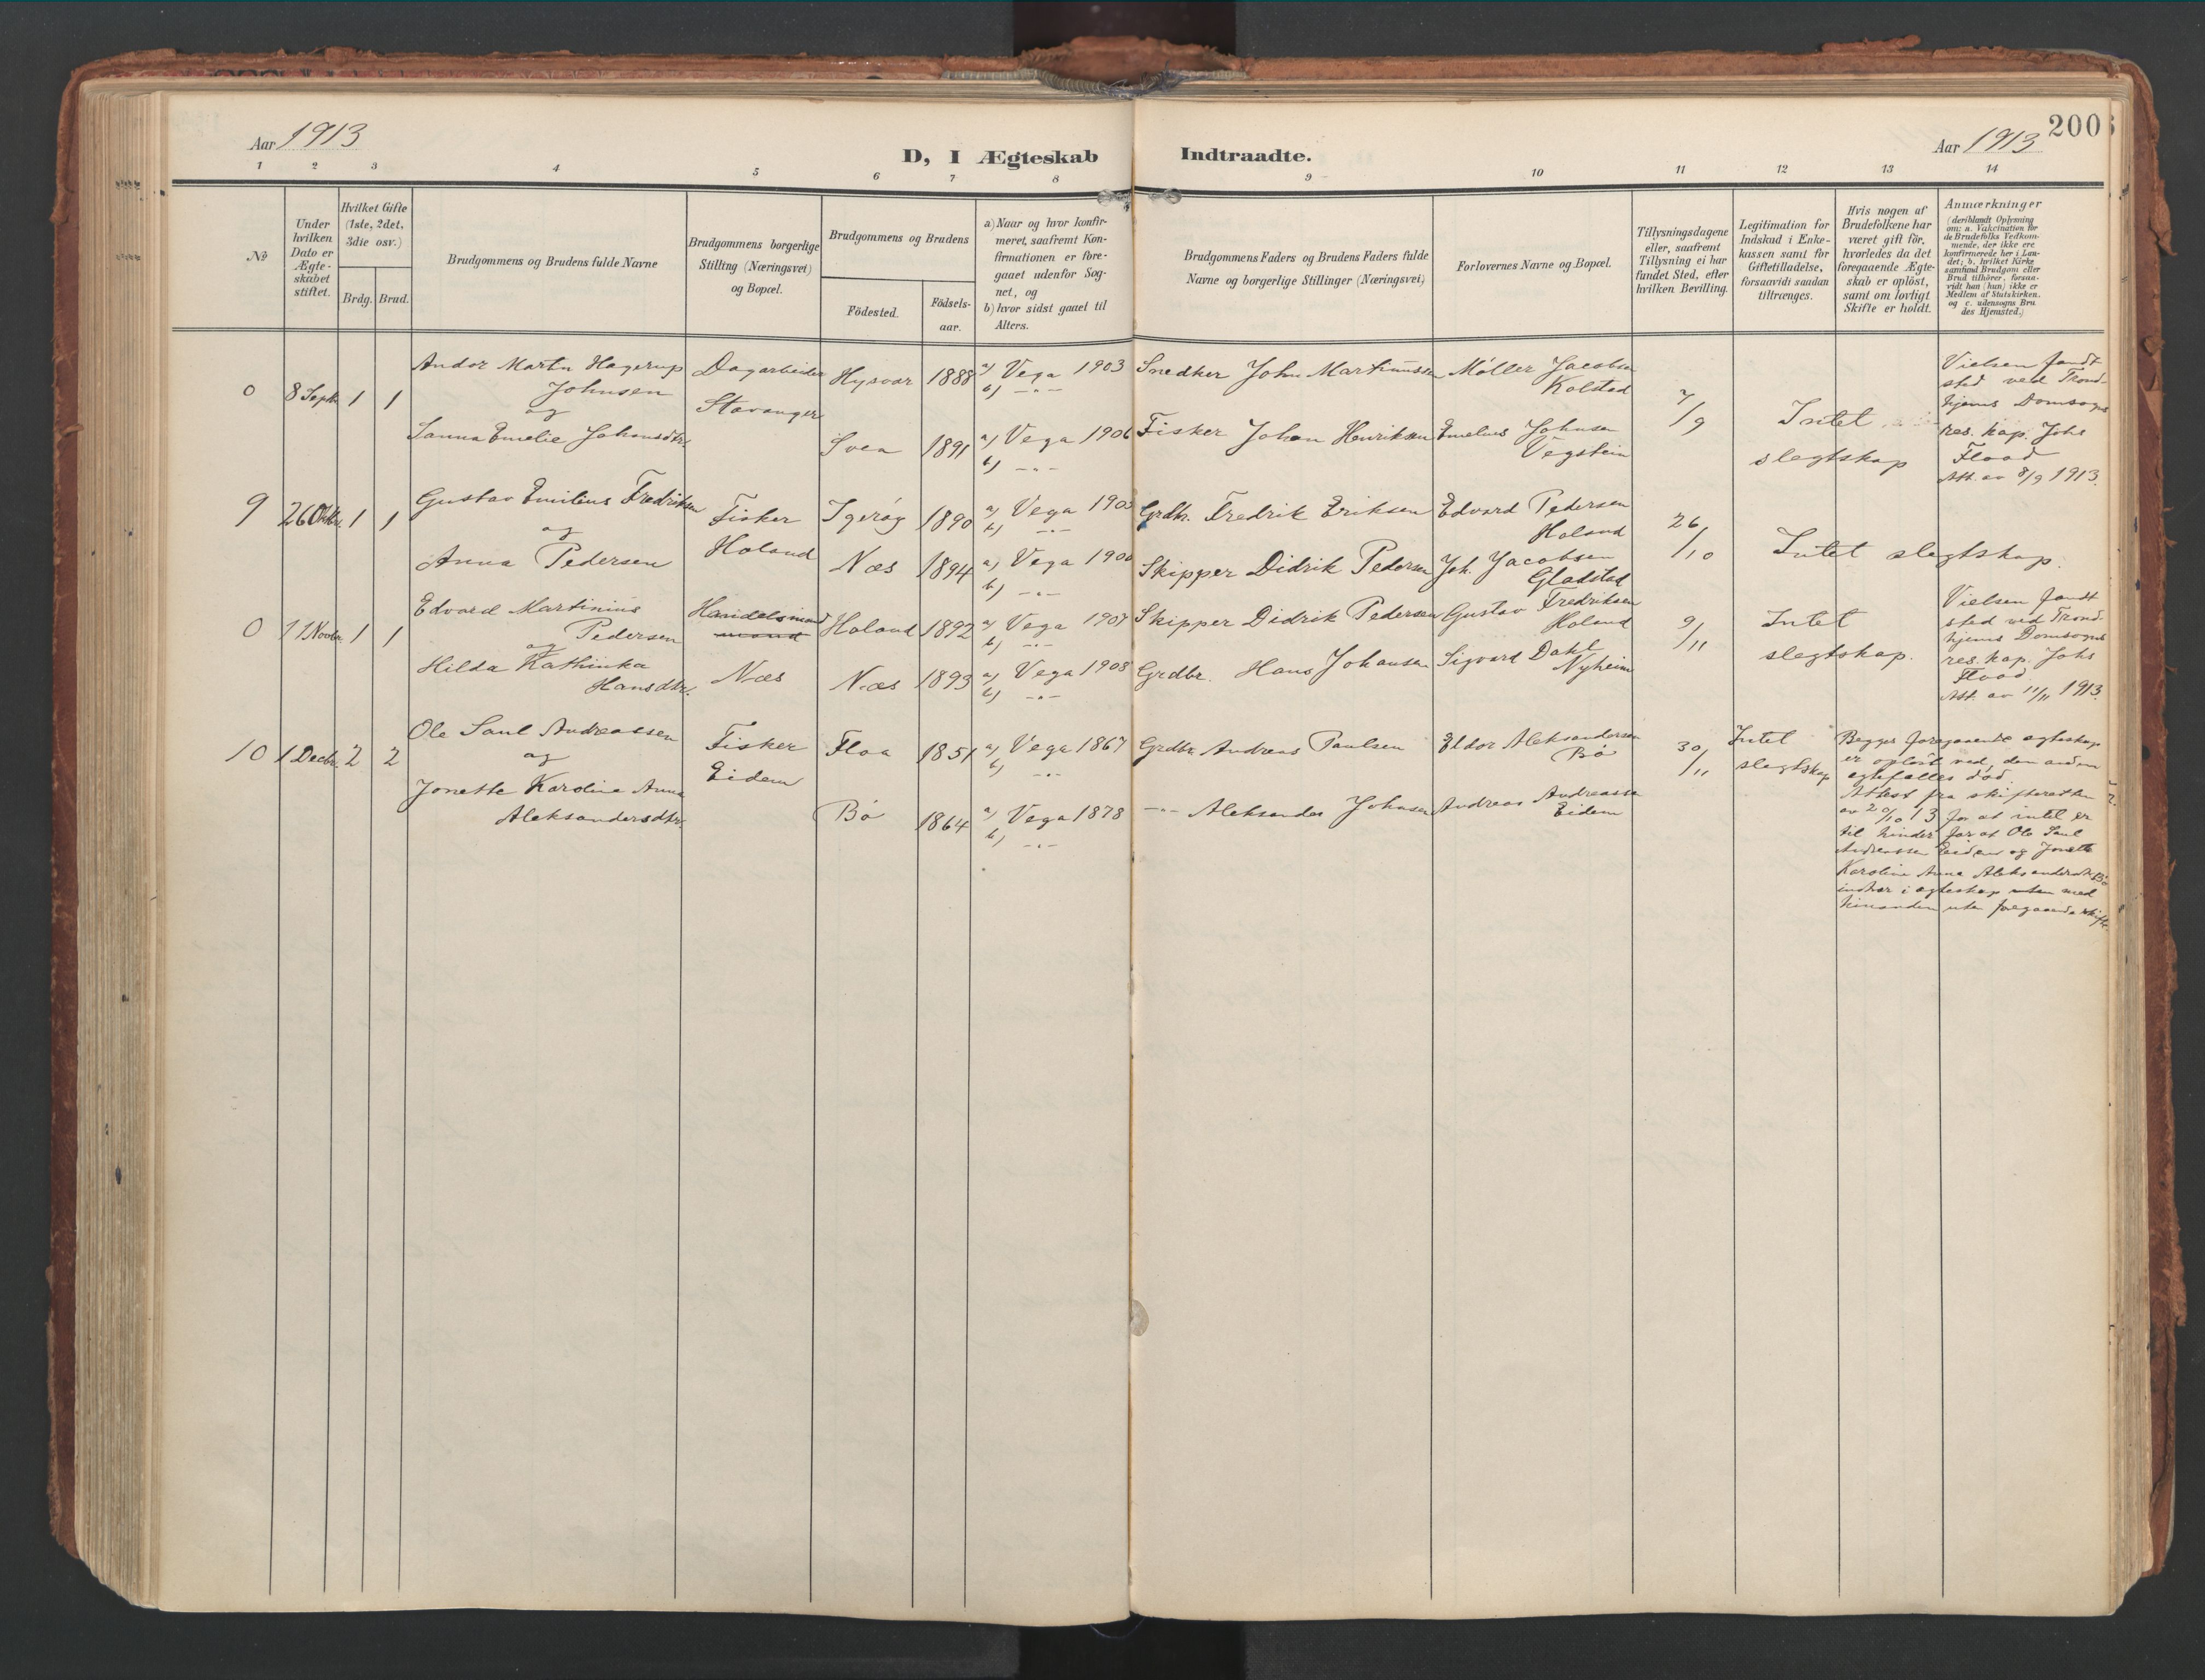 200
Aar 1913
D, I Ægteskab Indtraadte.
Aar 1913
1 2 3 4 5 6 7 8 9 10 11 12 13 14
№
Under
hvilken
Dato er
Ægte-
skabet
stiftet.
Hvilket Gifte
(1ste, 2det,
3die osv.)
Brdg. Brud.
Brudgommens og Brudens fulde Navne
Brudgommens borgerlige
Stilling (Næringsvei)
og Bopæl.
Brudgommens og Brudens
Födested.
Födsels-
aar.
a) Naar og hvor konfir-
meret, saafremt Kon-
firmationen er fore-
gaaet udenfor Sog-
net, og
b) hvor sidst gaaet til
Alters.
Brudgommens Faders og Brudens Faders fulde
Navne og borgerlige Stillinger (Næringsvei)
Forlovernes Navne og Bopæl.
Tillysningsdagene
eller, saafremt
Tillysning ei har
fundet Sted, efter
hvilken Bevilling.
Legitimation for
Indskud i Enke-
kassen samt for
Giftetilladelse,
forsaavidt saadan
tiltrænges.
Hvis nogen af
Brudefolkene har
været gift för,
hvorledes da det
foregaaende Ægte-
skab er oplöst,
samt om lovligt
Skifte er holdt.
Anmærkninger
(deriblandt Oplysning
om: a. Vakcination for
de Brudefolks Vedkom-
mende, der ikke ere
konfirmerede her i Lan-
det; b. hvilket Kirke
samfund Brudgom eller
Brud tilhörer, forsaa-
vidt han (hun) ikke er
Medlem af Statskirken.
og c. udensogns Bru
des Hjemsted.)
0 8 Sept. 1 1
Andor Martn Hagerup
Johnsen
og
Sanna Emelie Johansdtr.
Dagarbeider
Stavanger
Hysvær 1888 a) Vega 1903
b) -"-
Svea 1891 a) Vega 1906
b) -"-
Snedker John Martinussen
Fisker Johan Henriksen
Møller Jacobsen
Kolstad
Emelius Johnsen
Vegstein
7/9
Intet
slegtskap
Vielsen fandt
sted ved Trond-
hjems Domsogns
res. kap. Johs
Flood
Att. av 8/9 1913.
9 26 Oktbr. 1 1
Gustav Emilius Fredriksen
og
Anna Pedersen
Fisker
Holand
Igerøy 1890 a) Vega
b) -"-
Næs 1894 a) Vega
b) -"-
Grdbr. Fredrik Eriksen
Skipper Didrik Pedersen
Edvard Pedersen
Holand
Joh. Jacobsen
Gladstad
26/10
Intet slegtskap.
0 11 Novbr. 1 1
Edvard Martinius
Pedersen
og
Hilda Kathinka
Hansdtr.
Handelsmand
Næs
Holand 1892 a) Vega 1907
b) -"-
Næs 1893 a) Vega 1908
b) -"-
Skipper Didrik Pedersen
Grdbr. Hans Johansen
Gustav Fredriksen
Holand
Sigvard Dahl
Nyheim
9/11
Intet
slegtskap.
Vielsen fandt
sted ved Trond-
hjems Domsogns
res. kap. Johs
Flood
Att. av 11/11 1913.
10 1 Decbr. 2 2
Ole Saul Andreassen
og
Jonette Karoline Anna
Aleksandersdtr.
Fisker
Eidem
Floa 1851 a) Vega 1867
b) -"-
Bø 1864 a) Vega 1878
b) -"-
Grdbr. Andreas Paulsen
-"- Aleksander Johnsen
Eldor Aleksandersen
Bø
Andreas Andreassen
Eidem
30/11
Intet
slegtskap
Begges foregaaende egteskap
er opløst ved den anden
egtefælles død.
Attest fra skifteretten
av 20/10 13 for at intet er
til hinder for at Ole Saul
Andreassen Eidem og Jonette
Karoline Anna Aleksandersdtr. Bø
indtrær i egteskap med
hinanden uten foregaaende skifte.